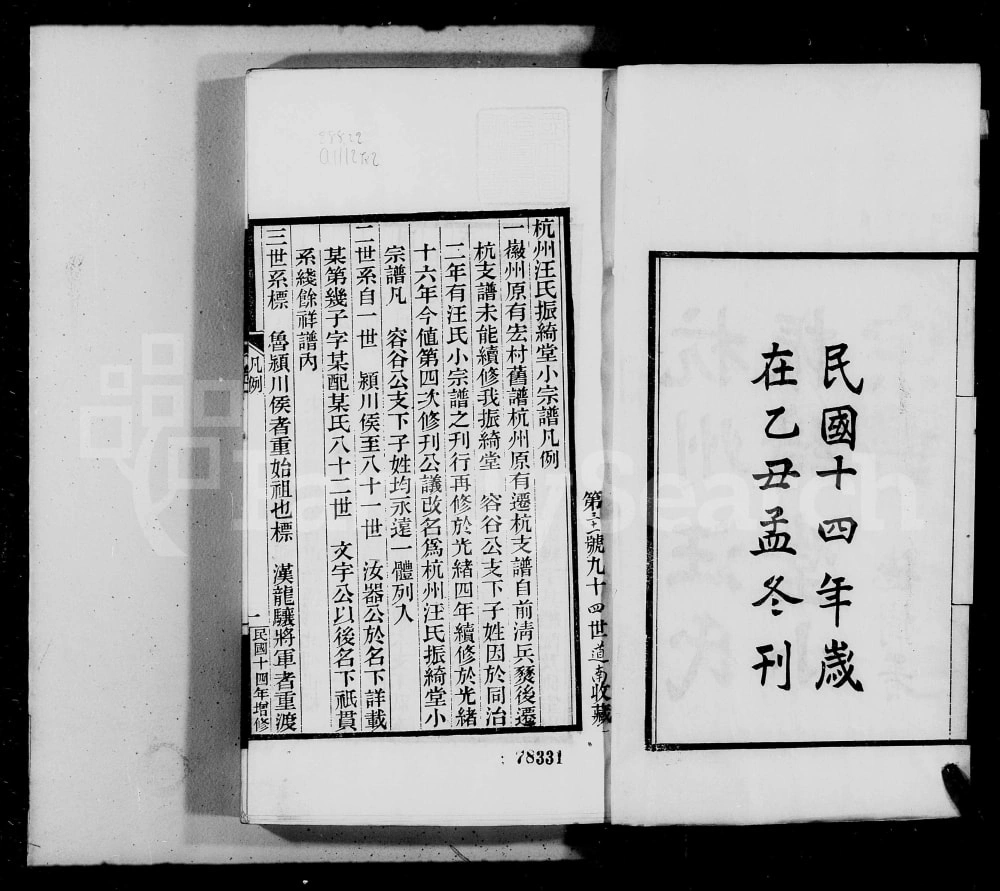 民國十四年歲
在乙丑孟冬刊
號九十四世道南收藏
杭州汪氏振綺堂小宗譜凡例
一徽州原有宏村舊譜杭州原有遷杭支譜自前淸兵燹後遷
杭支譜未能續修我振綺堂 容谷公支下子姓因於同治
二年有汪氏小宗譜之刊行再修於光緒四年續修於光緒
十六年今値第四次修刊公議改名爲杭州汪氏振綺堂小
宗譜凡 容谷公支下子姓均永遠一體列入
二世系自一世 潁川侯至八十一世 汝器公於名下詳載
某第幾子字某配某氏八十二世 文宇公以後名下祇貫
系綫餘祥譜內
三世系標 魯潁川侯者重始祖也標 漢龍驤將軍者重渡
凡例
一
民國十四年增修
78331
FamilySearch